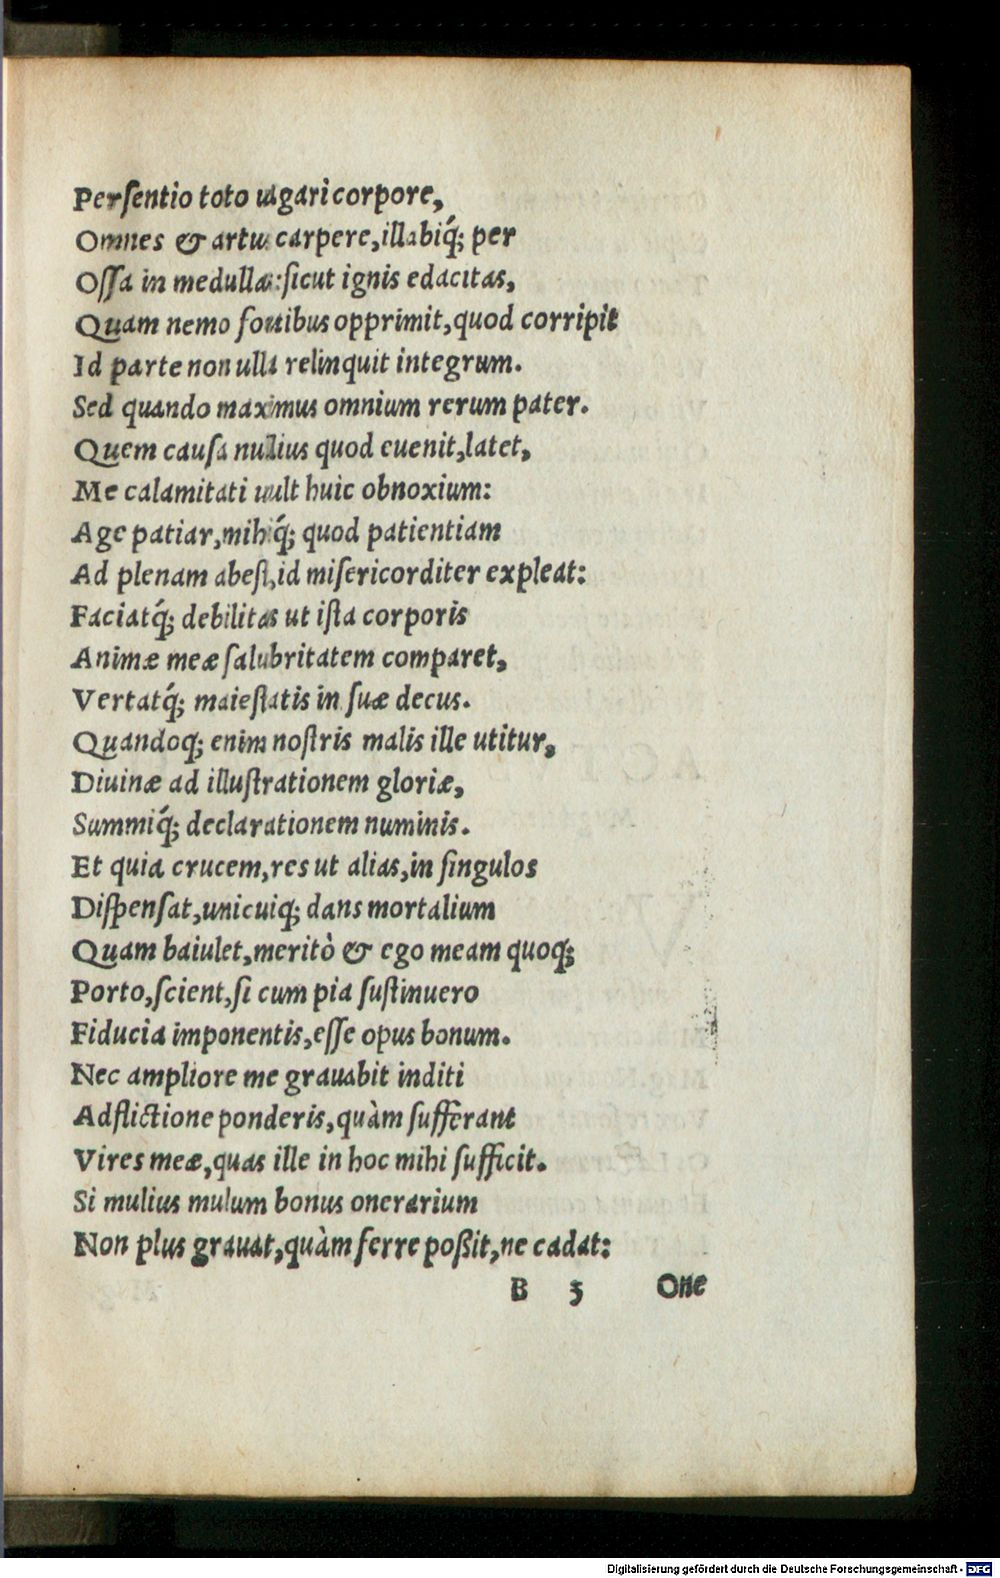 Perſentio toto uagari corpore,
Omnes & artus carpere, illabiq́; per
Oſſa in medullas: ſicut ignis edacitas,
Quam nemo fontibus opprimit, quod corripit
Id parte non ulla relinquit integrum.
Sed quando maximus omnium rerum pater.
Quem cauſa nullius quod euenit, latet,
Me calamitati uult huic obnoxium:
Age patiar, mihiq́; quod patientiam
Ad plenam abeſt, id miſericorditer expleat:
Faciatq́; debilitas ut iſta corporis
Animæ meæ ſalubritatem comparet,
Vertatq́; maieſtatis in ſuæ decus.
Quandoq; enim noſtris malis ille utitur,
Diuinæ ad illuſtrationem gloriæ,
Summiq́; declarationem numinis.
Et quia crucem, res ut alias, in ſingulos
Diſpenſat, unicuiq; dans mortalium
Quam baiulet, meritò & ego meam quoq;
Porto, ſcient, ſi cum pia ſuſtinuero
Fiducia imponentis, eſſe opus bonum.
Nec ampliore me grauabit inditi
Adflictione ponderis, quàm ſufferant
Vires meæ, quas ille in hoc mihi ſufficit.
Si mulius mulum bonus onerarium
Non plus grauat, quàm ferre poßit, ne cadat:
B 3 One
Digitalisierung gefördert durch die Deutsche Forschungsgemeinschaft - DFG